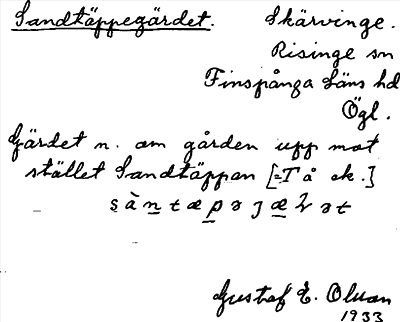 Sandtäppegärdet. Skärvinge.
Risinge sn
Finspånga läns hd
Ögl.
Gärdet n. om gården upp mot
stället Sandtäppan [=Tå ek.]
s̥àn̲tæp̲əȷæ̲r̥ət
Gustaf E. Olsson
1933